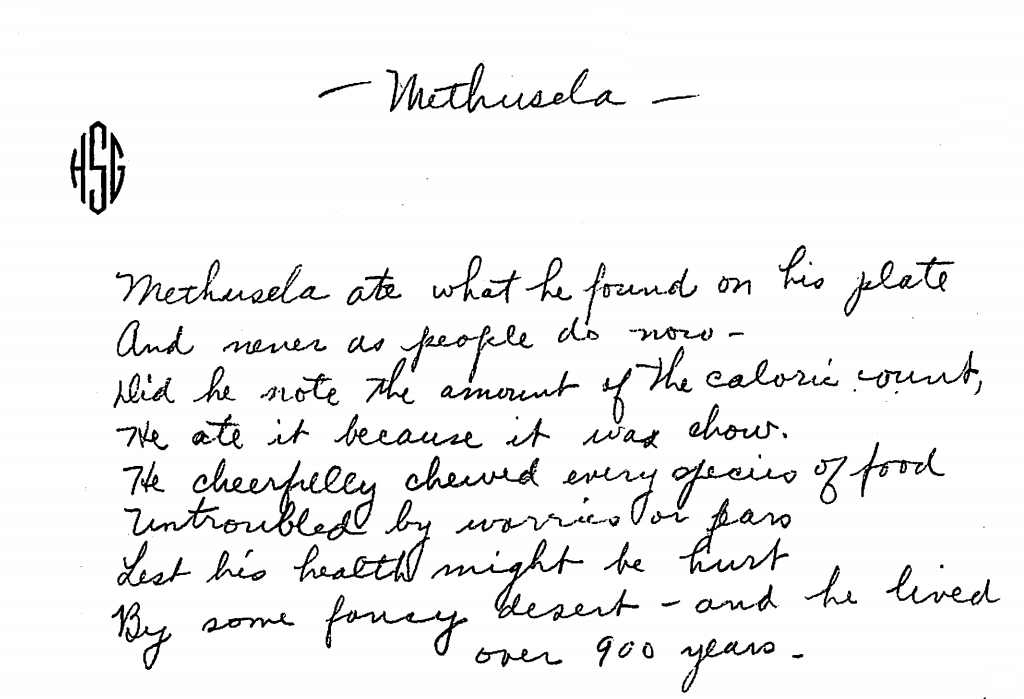 - Methusela -
HSG
Methusela ate what he found on his plate
And never as people do now -
Did he note the amount of the caloric count,
He ate it because it was chow.
He cheerfully chewed every species of food
Untroubled by worries or fears
Lest his health might be hurt
By some fancy desert - and he lived
over 900 years -